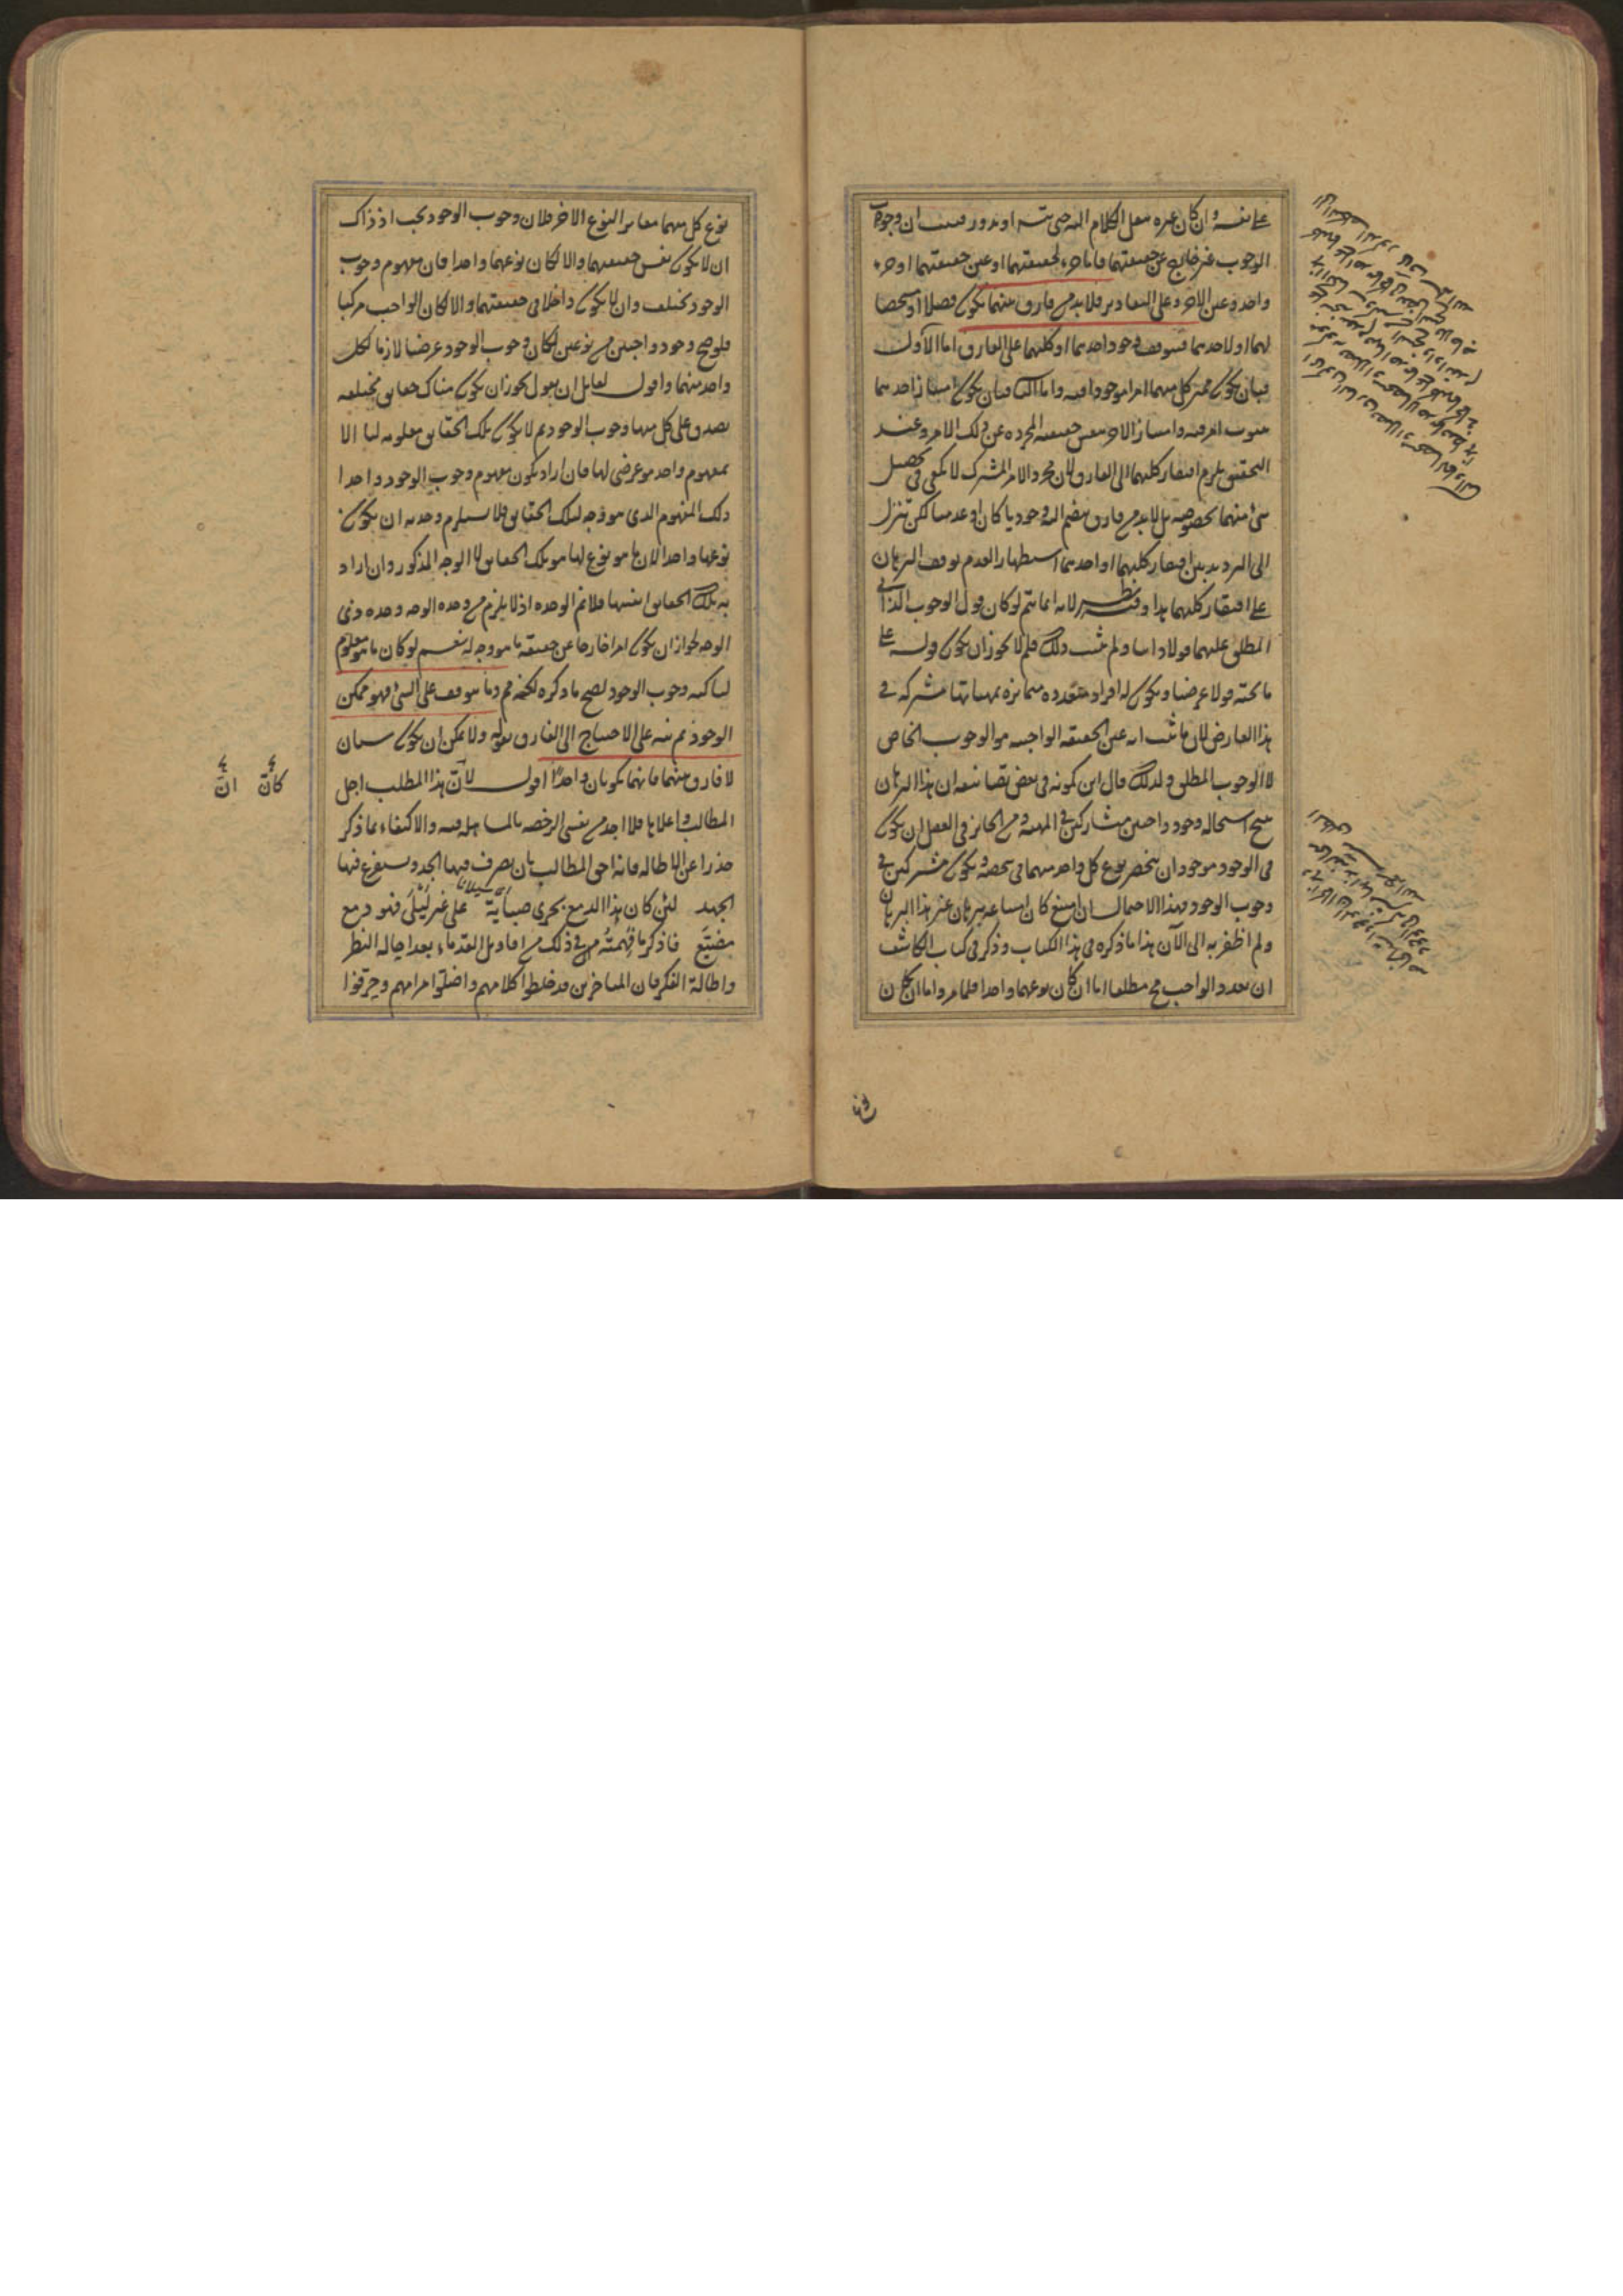 على نفسه وان كان غيره ننقل الكلام اليه حتى يتسلسل او يدور فثبت ان وجود
الوجوب غير خارج عن حقيقتهما فاما جزء لحقيقتهما او عين حقيقتهما او جزء
واحد وعين الاخر وعلى التقادير فلا بد من فارق بينهما يكون فصلا او مشخصا
لهما او لاحدهما فيتوقف وجود احدهما او كليهما على الفارق اما الاول
فبان يكون مميز كل منهما امرا موجودا فيه واما الثاني فبان يكون امتياز احدهما
بثبوت امر فيه وامتياز الاخر بنفس حقيقته المجرده عن ذلك الامر وعند
التحقيق يلزم افتقار كليهما الى الفارق لان مجرد الامر المشترك لا يكفي في تحصيل
شئ منهما بخصوصه بل لا بد من فارق ينضم اليه وجوديا كان او عدميا لكن تنزل
الى الترديد بين افتقار كليهما او احدهما استظهارا لعدم توقف البرهان
على افتقار كليهما هذا وفيه نظر لانه انما يتم لو كان قول الوجوب الذاتي
المطلق عليهما قولا ذاتيا ولم يثبت ذلك فلم لا يجوز ان يكون قوله على
ما تحته قولا عرضيا ويكون له افراد متعدده متمايزه بمهياتها مشتركه في
هذا العارض لان ما ثبت انه عين الحقيقه الواجبيه هو الوجوب الخاص
لا الوجوب المطلق ولذلك قال ابن كمونه في بعض تصانيفه ان هذا البرهان
ينتج استحاله وجود واجبين متشاركين في المهيه ومن الجائز في العقل ان يكون
في الوجود موجودان ينحصر نوع كل واحد منهما في شخصه ويكون مشتركين في
وجوب الوجود فهذا الاحتمال ان امتنع كان امتناعه ببرهان غير هذا البرهان
ولم اظفر به الى الآن هذا ما ذكره في هذا الكتاب وذكر في كتاب الكاشف
ان تعدد الواجب مح مطلقا اما ان كان نوعهما واحدا فلما مر واما ان كان
نوع كل منهما مغاير النوع الاخر فلان وجوب الوجود يجب اذ ذاك
ان لا يكون نفس حقيقتهما والا لكان نوعهما واحدا فان مفهوم وجوب
الوجود لا يختلف وان لا يكون داخلا في حقيقتهما والا لكان الواجب مركبا
فلو صح وجود واجبين من نوعين لكان وجوب الوجود عرضيا لازما لكل
واحد منهما واقول لقايل ان يقول يجوز ان يكون هناك حقايق مختلفه
يصدق على كل منها وجوب الوجود ثم لا يكون تلك الحقايق معلومه لنا الا
بمفهوم واحد هو عرضي لها فان اراد بكون مفهوم وجوب الوجود واحدا
ذلك المفهوم الذي هو وجه لتلك الحقايق فلا يستلزم وحدته ان يكون
نوعها واحدا لان ما هو نوع لها هو تلك الحقايق لا الوجه المذكور وان اراد
به تلك الحقايق انفسها فلا نم الوحده اذ لا يلزم من وحده الوجه وحده ذي
الوجه لجواز ان يكون امرا خارجا عن حقيقه ما هو وجه له نعم لو كان ما هو معلوم
لنا كنه وجوب الوجود لصح ما ذكره لكنه مم وما يتوقف على الشئ فهو ممكن
الوجود ثم نبه على الاحتياج الى الفارق بقوله ولا يمكن ان يكون شيئان
لا فارق بينهما فانهما يكونان واحدا اقول لان هذا المطلب اجل
المطالب واعلاها فلا اجد من نفسي الرخصه بالمساهله فيه والاكتفاء بما ذكر
حذرا عن الاطاله فانه احق المطالب بان يصرف فيها الجد ويستفرغ فيها
الجهد لئن كان هذا الدمع يجري صبابة على غير ليلى فهو دمع
مضيّع فاذكر ما فهمته من ذلك من اقاويل القدماء بعد اجاله النظر
واطالة الفكر فان المتاخرين قد خلطوا كلامهم واضلوا مرامهم وحرفوا
كانّ انّ